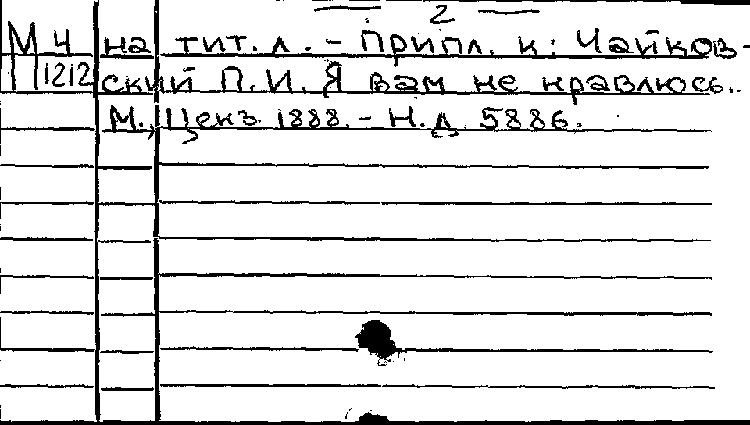 — 2 —
М 4 на тит. л. - Припл. к: Чайков-
П 1212 ский П.И. Я вам не нравлюсь.
М., Ценз. 1888. - Н.д. 5886.